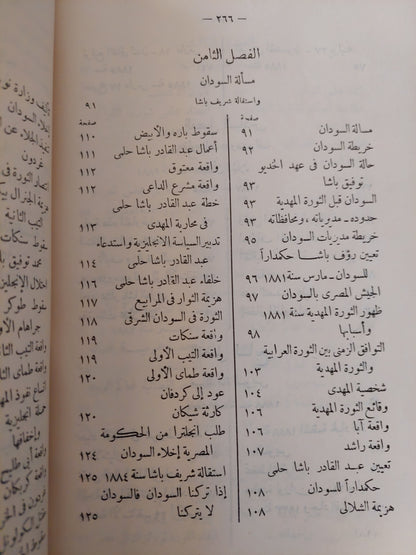 — ٢٦٦ —
الفصل الثامن
مسألة السودان
واستقالة شريف باشا
٩١
صفحة
مسألة السودان ٩١
خريطة السودان ٩٢
حالة السودان فى عهد الخديو
توفيق باشا ٩٣
السودان قبل الثورة المهدية ٩٣
حدوده ـ مديرياته ـ ومحافظاته ٩٣
خريطة مديريات السودان ٩٥
تعيين رؤوف باشا حكمداراً
للسودان ـ مارس سنة ١٨٨١ ٩٦
الجيش المصرى بالسودان ٩٧
ظهور الثورة المهدية سنة ١٨٨١
وأسبابها ٩٨
التوافق الزمنى بين الثورة العرابية
والثورة المهدية ١٠٣
شخصية المهدى ١٠٤
وقائع الثورة المهدية ١٠٦
واقعة آبا ١٠٦
واقعة راشد ١٠٧
تعيين عبد القادر باشا حلمى
حكمداراً للسودان ١٠٨
هزيمة الشلالى ١٠٨
صفحة
سقوط باره والأبيض ١١٠
أعمال عبد القادر باشا حلمى ١١١
واقعة معتوق ١١٢
واقعة مشرع الداعى ١١٢
خطة عبد القادر باشا حلمى
فى محاربة المهدى ١١٣
تدبير السياسة الانجليزية واستدعاء
عبد القادر باشا حلمى ١١٤
خلفاء عبد القادر باشا حلمى ١١٦
هزيمة الثوار فى المرابيع ١١٧
الثورة فى السودان الشرقى ١١٨
واقعة سنكات ١١٩
واقعة التيب الأولى ١١٩
واقعة طماى الأولى ١٢٠
عود إلى كردفان
كارثة شيكان ١٢٠
طلب انجلترا من الحكومة
المصرية إخلاء السودان ١٢٤
استقالة شريف باشا سنة ١٨٨٤ ١٢٥
إذا تركنا السودان فالسودان
لا يتركنا ١٢٥